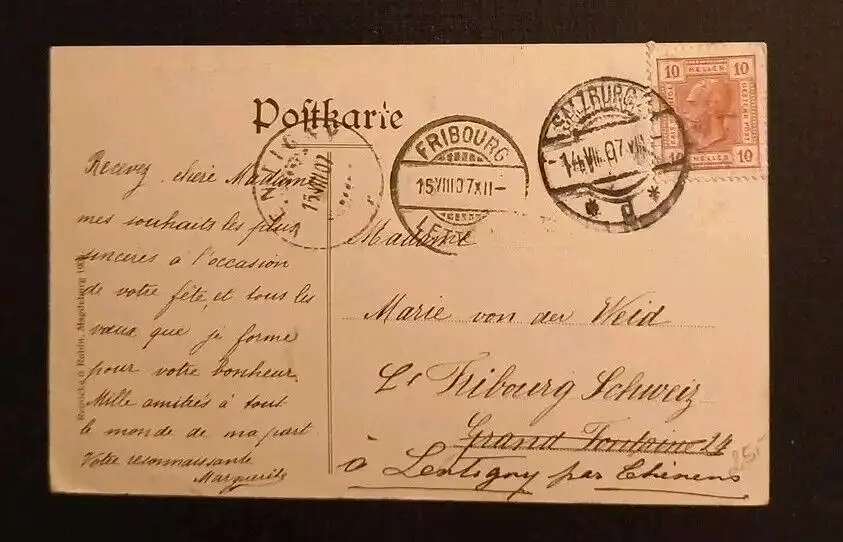 Postkarte
Recevez, chère Madame
mes souhaits les plus
sincères à l'occasion
de votre fête, et tous les
vœux que je forme
pour votre bonheur.
Mille amitiés à tout
le monde de ma part.
Votre reconnaissante
Marguerite
15.VIII.07
FRIBOURG
15.VIII.07.XII-
LETT
SALZBURG 2
14.VIII.07
* d *
10 HELLER 10
10 HELLER 10
Madame
Marie von der Weid
Fribourg Schweiz
Grand Fontaine 24
à Lentigny par Chénens
25,-
Magdeburg